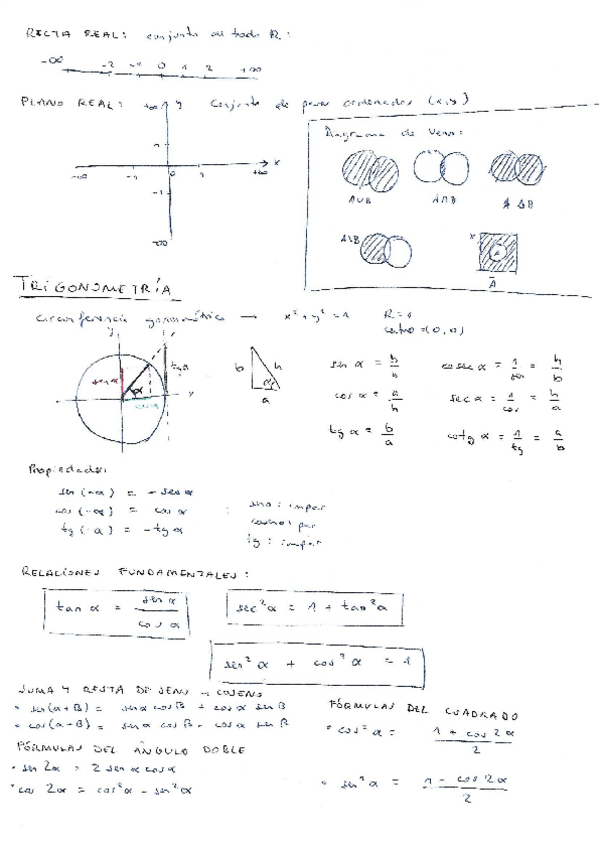 RECTA REAL: conjunto de todo R:
-∞ -2 -1 0 1 2 +∞
PLANO REAL: +∞ y conjunto de pares ordenados (x,y)
Diagrama de Venn:
-∞ -1 0 1 +∞ x
-1
-∞
A∪B A∩B A Δ B
A\B
A
Ā
TRIGONOMETRÍA
circunferencia goniométrica → x² + y² = 1 R = 1
centro = (0,0)
y
sen α
tg α
α
cos α
x
b h
α
a
sin α = b/h cosec α = 1/sen = h/b
cos α = a/h sec α = 1/cos = h/a
tg α = b/a cotg α = 1/tg = a/b
Propiedades:
sen (-α) = - sen α
cos (-α) = cos α
tg (-α) = - tg α
seno: impar
coseno: par
tg: impar
RELACIONES FUNDAMENTALES:
tan α = sen α / cos α
sec² α = 1 + tan² α
sen² α + cos² α = 1
SUMA Y RESTA DE SENOS Y COSENOS
• sen(α+β) = sen α cos β + cos α sen β
FÓRMULAS DEL CUADRADO
• cos² α = 1 + cos 2α / 2
FÓRMULAS DEL ÁNGULO DOBLE
• sen 2α = 2 sen α cos α
• cos 2α = cos² α - sen² α
• sen² α = 1 - cos 2α / 2